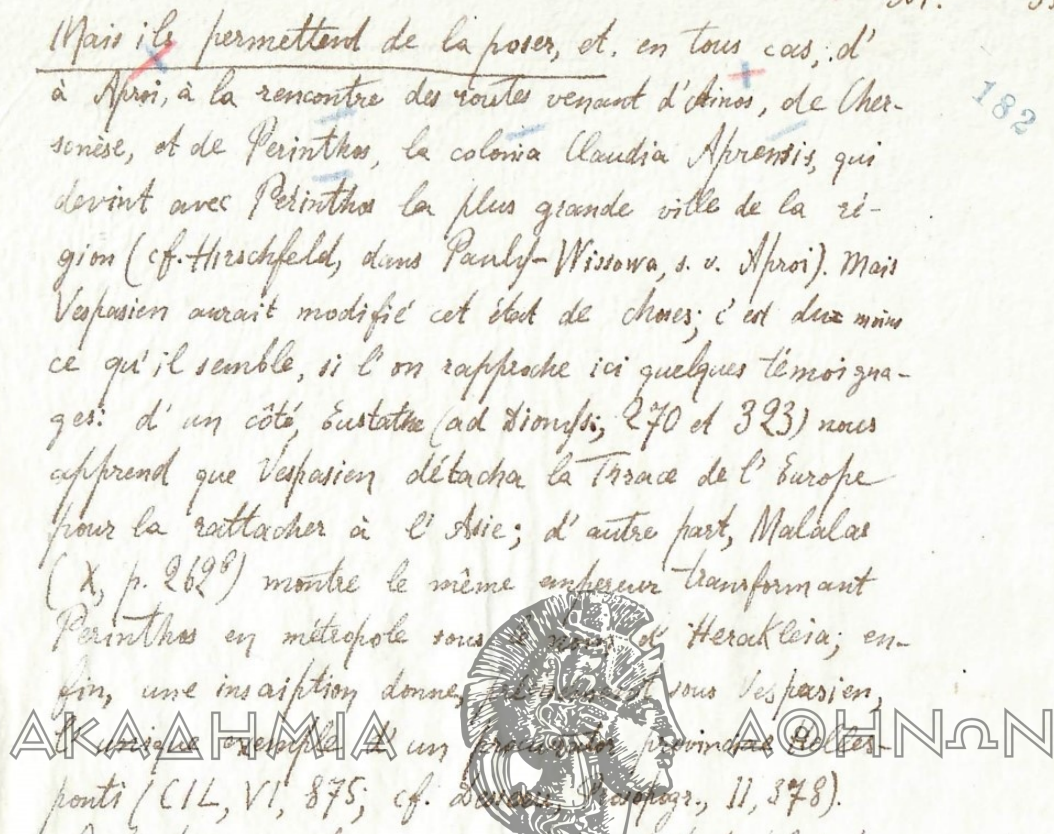 Mais ils permettent de la poser, et, en tous cas, d'
à Aproi, à la rencontre des routes venant d'Ainos, de Cher-
182
sonèse, et de Perinthos, la colonia Claudia Aprensis, qui
devint avec Perinthos la plus grande ville de la ré-
gion (cf. Hirschfeld, dans Pauly-Wissowa, s. v. Aproi). Mais
Vespasien aurait modifié cet état de choses; c'est du moins
ce qu'il semble, si l'on rapproche ici quelques témoigna-
ges: d'un côté, Eustathe (ad Dionys; 270 et 323) nous
apprend que Vespasien détacha la Thrace de l'Europe
pour la rattacher à l'Asie; d'autre part, Malalas
(X, p. 262⁸) montre le même empereur transformant
Perinthos en métropole sous le nom d'Herakleia; en-
fin, une inscription donne, sous Vespasien,
ΑΚΑΔΗΜΙΑ ΑΘΗΝΩΝ
l'unique exemple d'un procurator provinciae Helles-
ponti (CIL, VI, 875; cf. Dessau, Prosopogr., II, 378).